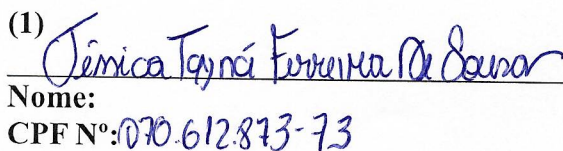 (1)
Jéssica Tayná Ferreira De Souza
Nome:
CPF Nº: 070.612.873-73